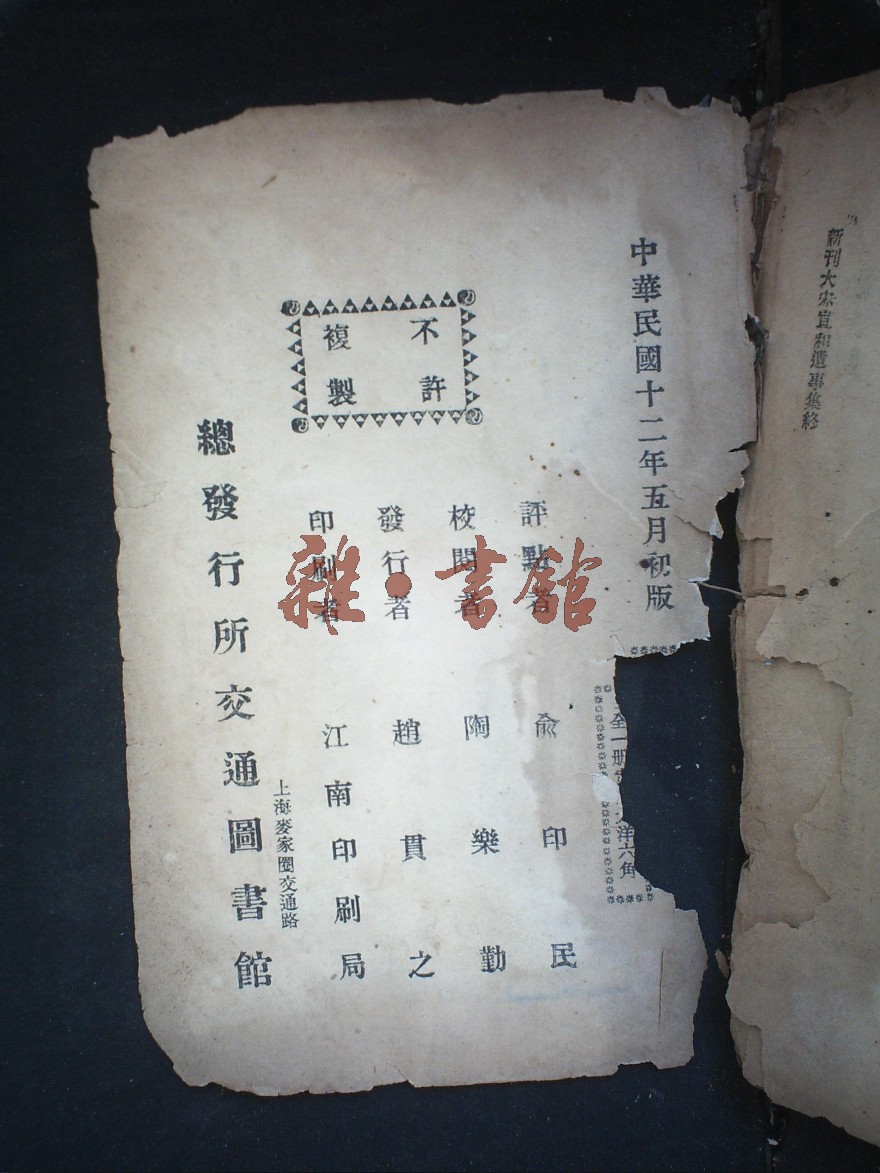 新刊大宋宣和遺事集終
中華民國十二年五月初版
全一册
洋六角
不許
複製
評點者 俞印民
校閱者 陶樂勤
發行者 趙貫之
印刷者 江南印刷局
上海麥家圈交通路
總發行所交通圖書館
雜·書館